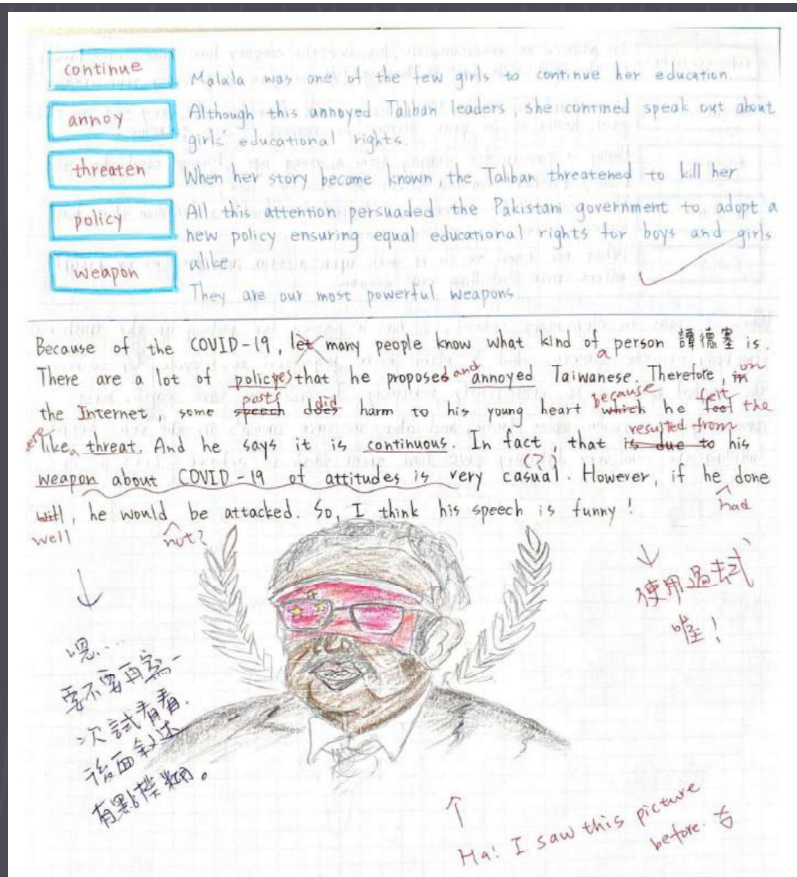 continue
Malala was one of the few girls to continue her education.
annoy
Although this annoyed Taliban leaders, she contined speak out about
girls' educational rights.
threaten
When her story became known, the Taliban threatened to kill her
policy
All this attention persuaded the Pakistani government to adopt a
new policy ensuring equal educational rights for boys and girls
alike
weapon
They are our most powerful weapons
Because of the COVID-19, let many people know what kind of a person 譚德塞 is.
There are a lot of policy(es) that he proposed and annoyed Taiwanese. Therefore, in on
the Internet, some speech posts does did harm to his young heart which because he feel felt the
like a threat. And he says it is continuous. In fact, that is due to resulted from his
weapon about COVID-19 of attitudes is very casual. (??) However, if he had done
will well, he would not? be attacked. So, I think his speech is funny!
使用過去式
喔!
嗯...
要不要再寫一
次試看看.
後面敘述
有點模糊。
Ha! I saw this picture
before.